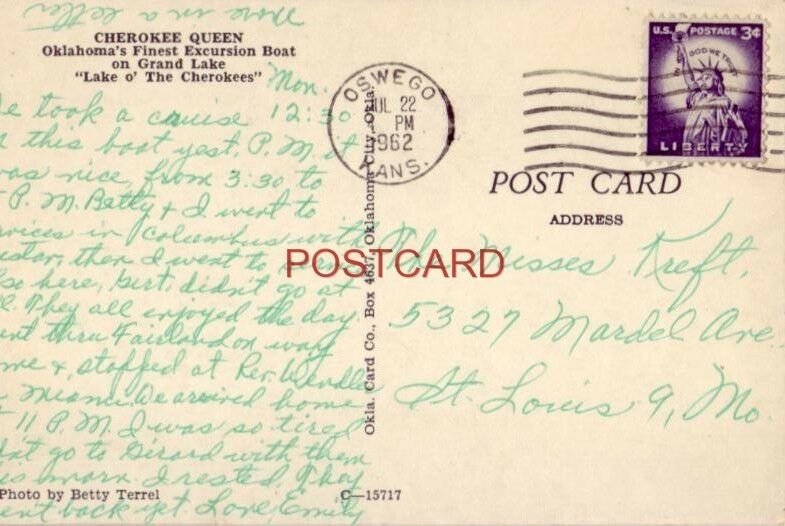 More in a letter
CHEROKEE QUEEN
Oklahoma's Finest Excursion Boat
on Grand Lake
"Lake o' The Cherokees"
Mon.
12:30
e took a cruise
n this boat yest. P.M. it
was nice, from 3:30 to
P.M. Betty & I went to
rvices in Columbus with
then I went to
so here, Gert. didn't go at
ll. They all enjoyed the day.
ent thru Fairland on way
me & stopped at Rev. Wendler
Miami. We arrived home
11 P.M. I was so tired
idn't go to Girard with them
is morn. I rested. They
ent back yet. Love, Emily
Photo by Betty Terrel
C-15717
Okla. Card Co., Box 4637, Oklahoma City, Okla.
OSWEGO
JUL 22
PM
1962
KANS.
U.S. POSTAGE 3¢
IN GOD WE TRUST
LIBERTY
POST CARD
ADDRESS
POSTCARD
The Misses Kreft.
5327 Mardel Ave
St. Louis 9, Mo.